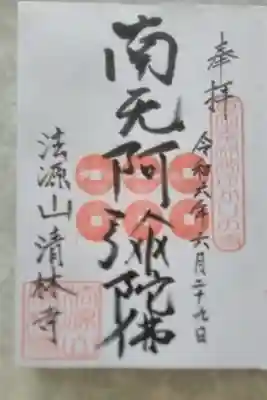 奉拝
令和六年六月二十九日
南无阿弥陀佛
法源山清林寺